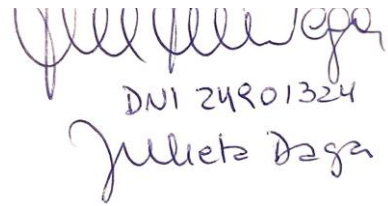 DNI 24901324
Julieta Daga